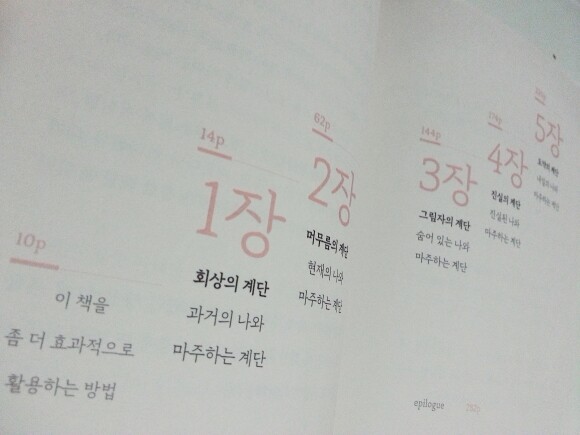 10p
이 책을
좀 더 효과적으로
활용하는 방법
14p
1장
회상의 계단
과거의 나와
마주하는 계단
62p
2장
머무름의 계단
현재의 나와
마주하는 계단
144p
3장
그림자의 계단
숨어 있는 나와
마주하는 계단
4장
진실의 계단
진실된 나와
마주하는 계단
5장
계단
마주하는 계단
epilogue